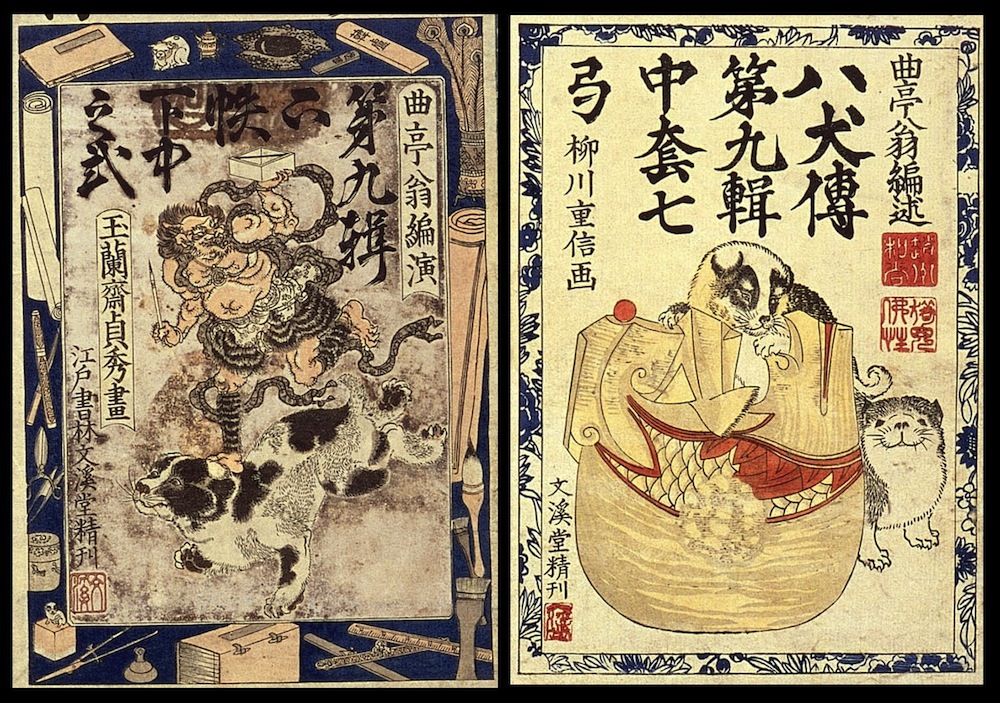 曲亭翁編演
第九輯
帙
下中
之弐
玉蘭齋貞秀畫
江戸書林文溪堂精刊
曲亭翁編述
八犬傳
第九輯
中套七
弓
柳川重信画
文溪堂精刊